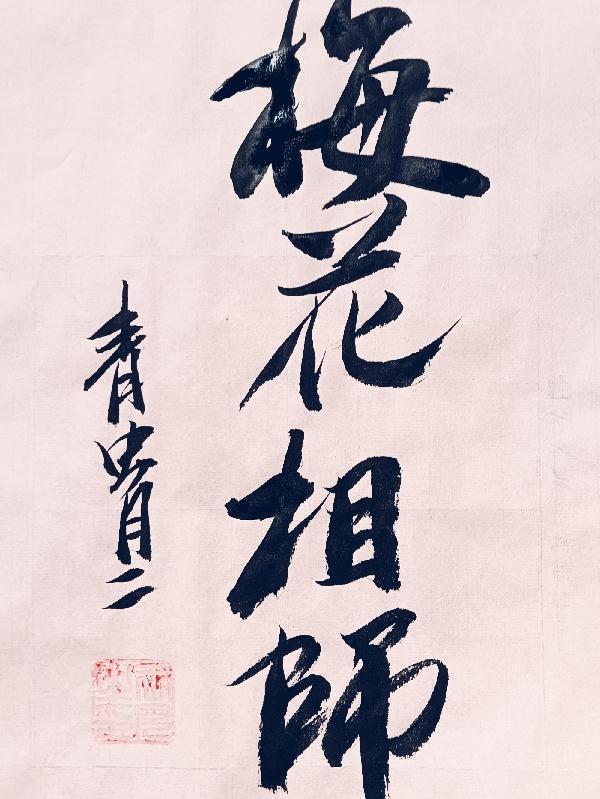 梅花相師
青
月二